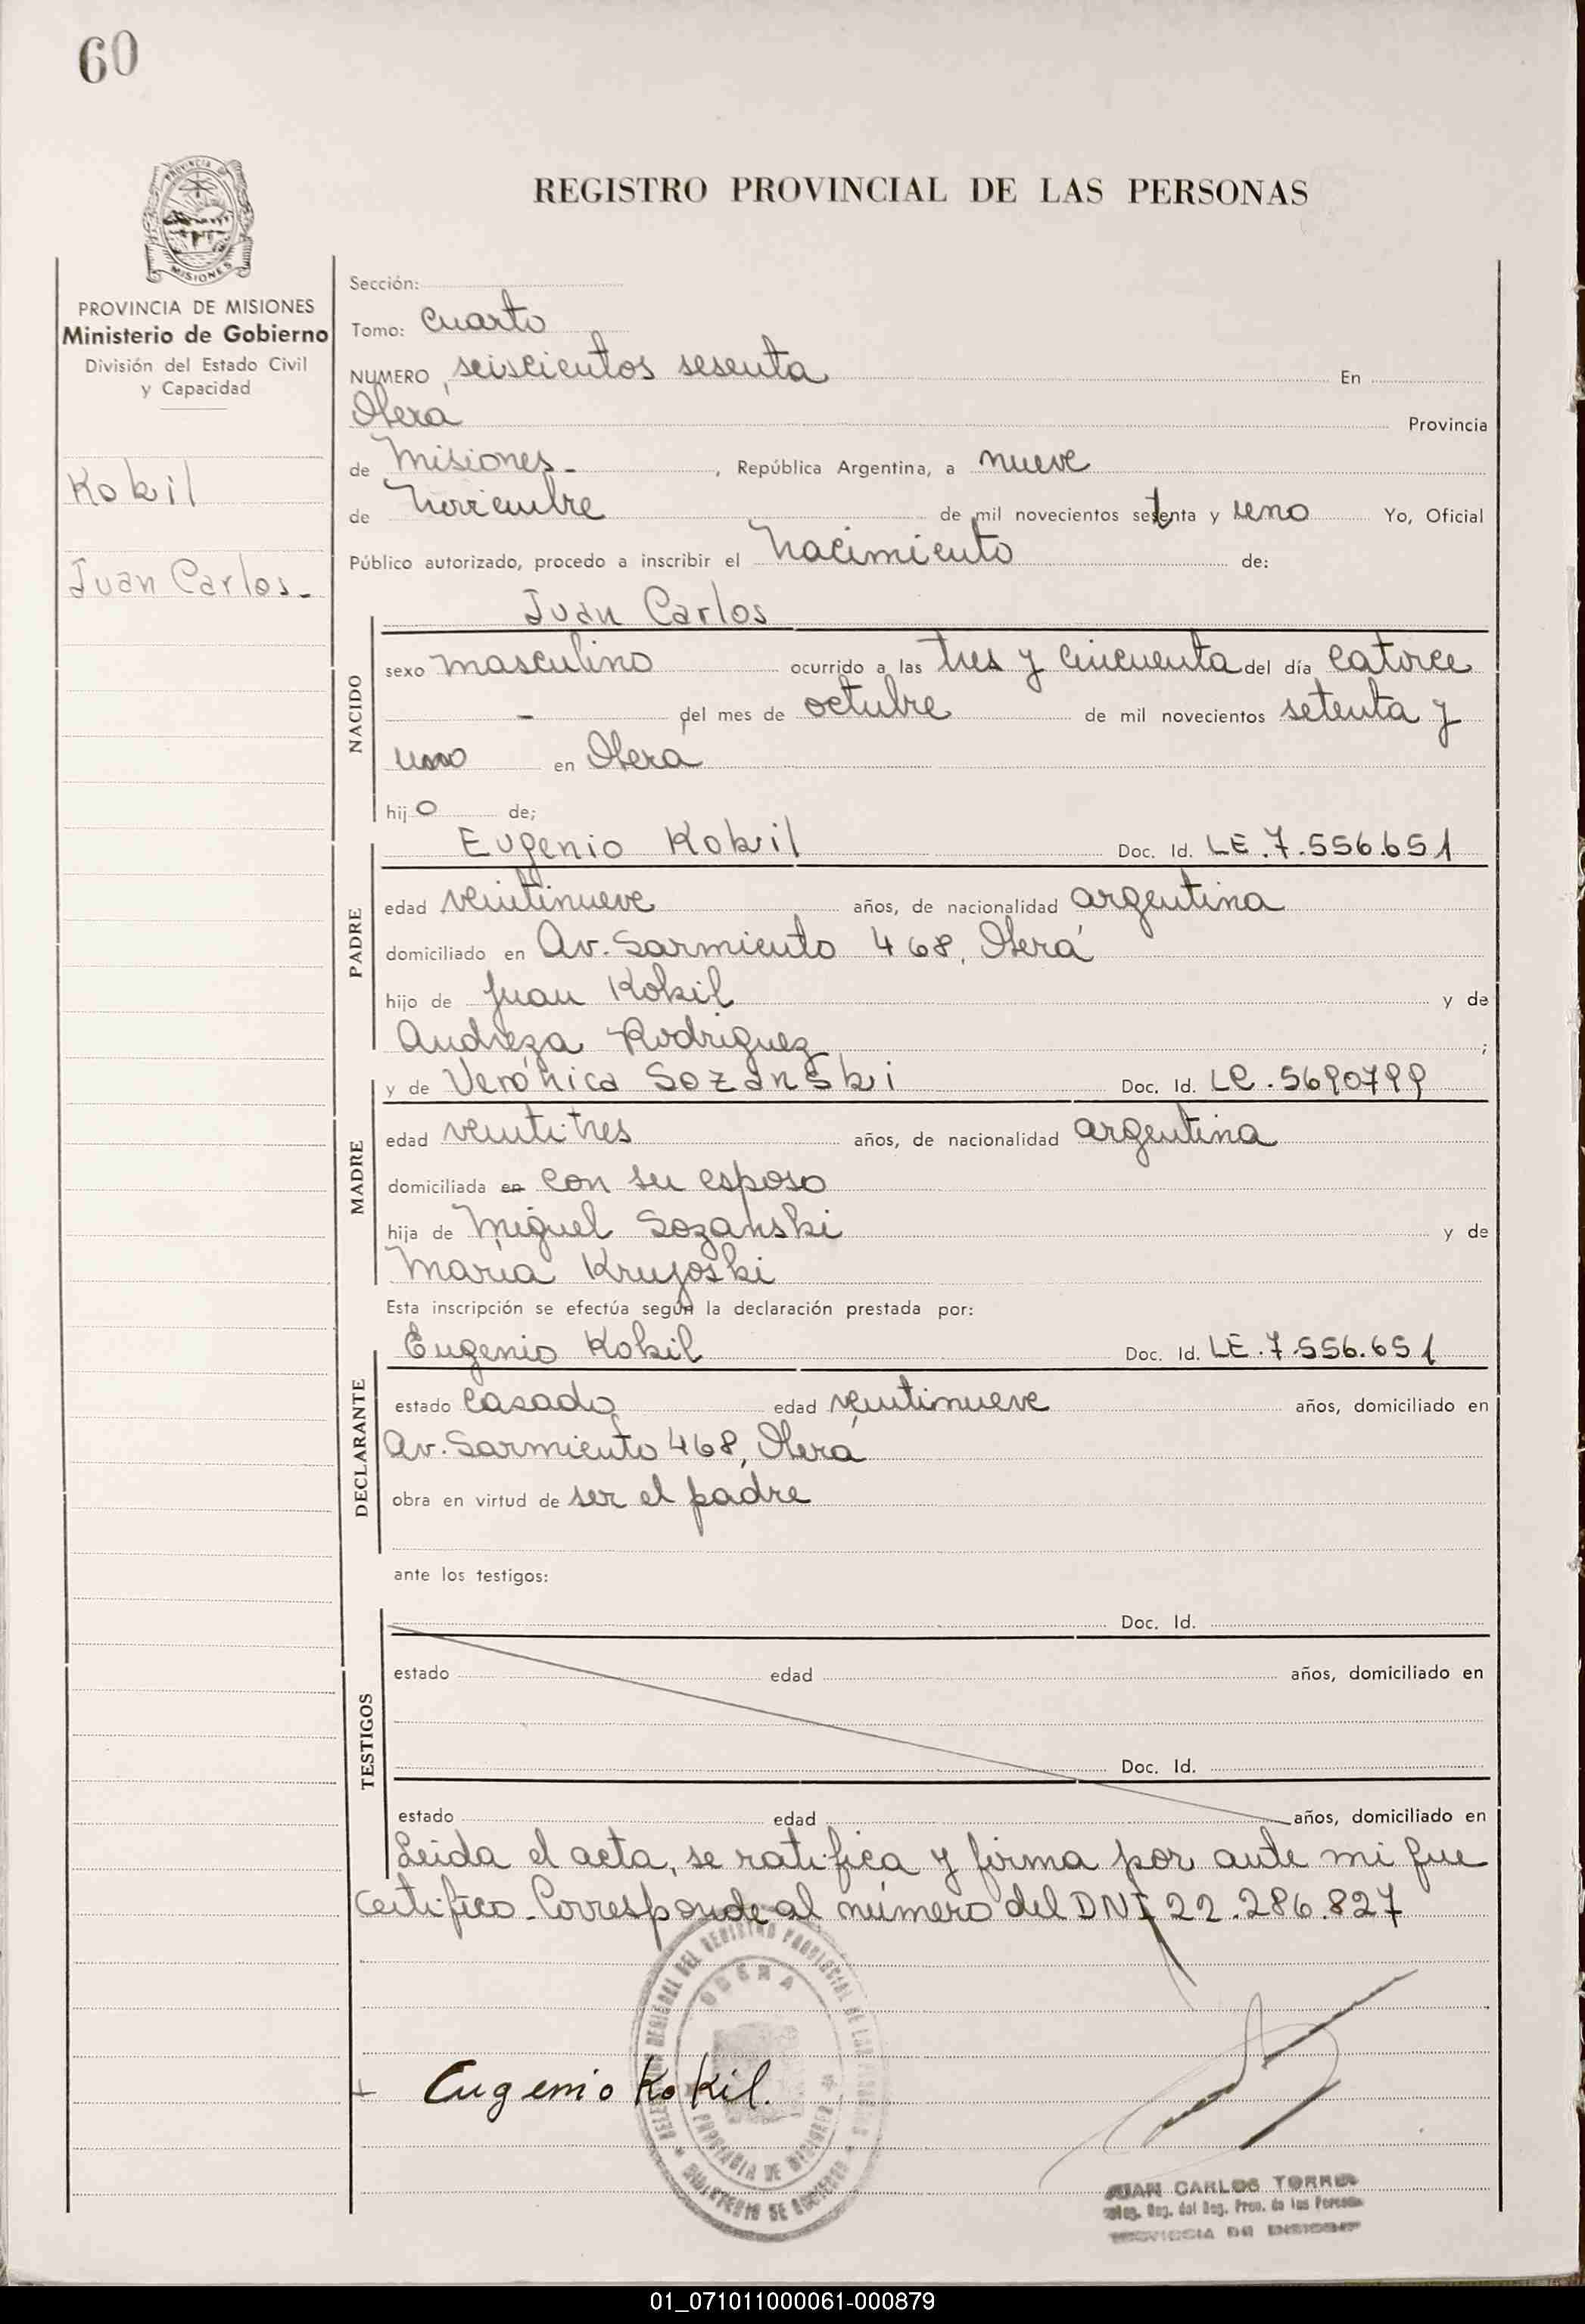 60
PROVINCIA DE MISIONES
Ministerio de Gobierno
División del Estado Civil
y Capacidad
Kokil
Juan Carlos.-
REGISTRO PROVINCIAL DE LAS PERSONAS
Sección:
Tomo: cuarto
NUMERO seiscientos sesenta En
Oberá Provincia
de Misiones.- , República Argentina, a nueve
de noviembre de mil novecientos setenta y uno Yo, Oficial
Público autorizado, procedo a inscribir el nacimiento de:
NACIDO
Juan Carlos
sexo masculino ocurrido a las tres y cincuenta del día catorce
- del mes de octubre de mil novecientos setenta y
uno en Oberá
hijo de;
PADRE
Eugenio Kokil Doc. Id. LE.7.556.651
edad veintinueve años, de nacionalidad argentina
domiciliado en Av. Sarmiento 468, Oberá
hijo de Juan Kokil y de
Andreza Rodriguez ;
MADRE
y de Verónica Sozanski Doc. Id. LC.5690799
edad veintitres años, de nacionalidad argentina
domiciliada en con su esposo
hija de Miguel Sozanski y de
María Krujoski
Esta inscripción se efectúa según la declaración prestada por:
DECLARANTE
Eugenio Kokil Doc. Id. LE.7.556.651
estado casado edad veintinueve años, domiciliado en
Av. Sarmiento 468, Oberá
obra en virtud de ser el padre
ante los testigos:
TESTIGOS
Doc. Id.
estado edad años, domiciliado en
Doc. Id.
estado edad años, domiciliado en
Leida el acta, se ratifica y firma por ante mi que
certifico. Corresponde al número del DNI 22.286.827
OBERA
PROVINCIA DE MISIONES
MINISTERIO DE GOBIERNO
Eugenio Kokil.
JUAN CARLOS TORRES
Reg. del Reg. Prov. de las Personas
PROVINCIA DE MISIONES
01_071011000061-000879